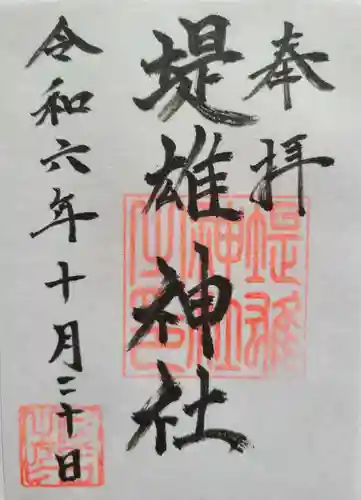 奉拝
堤雄神社
令和六年十月二十日
堤雄神社之印